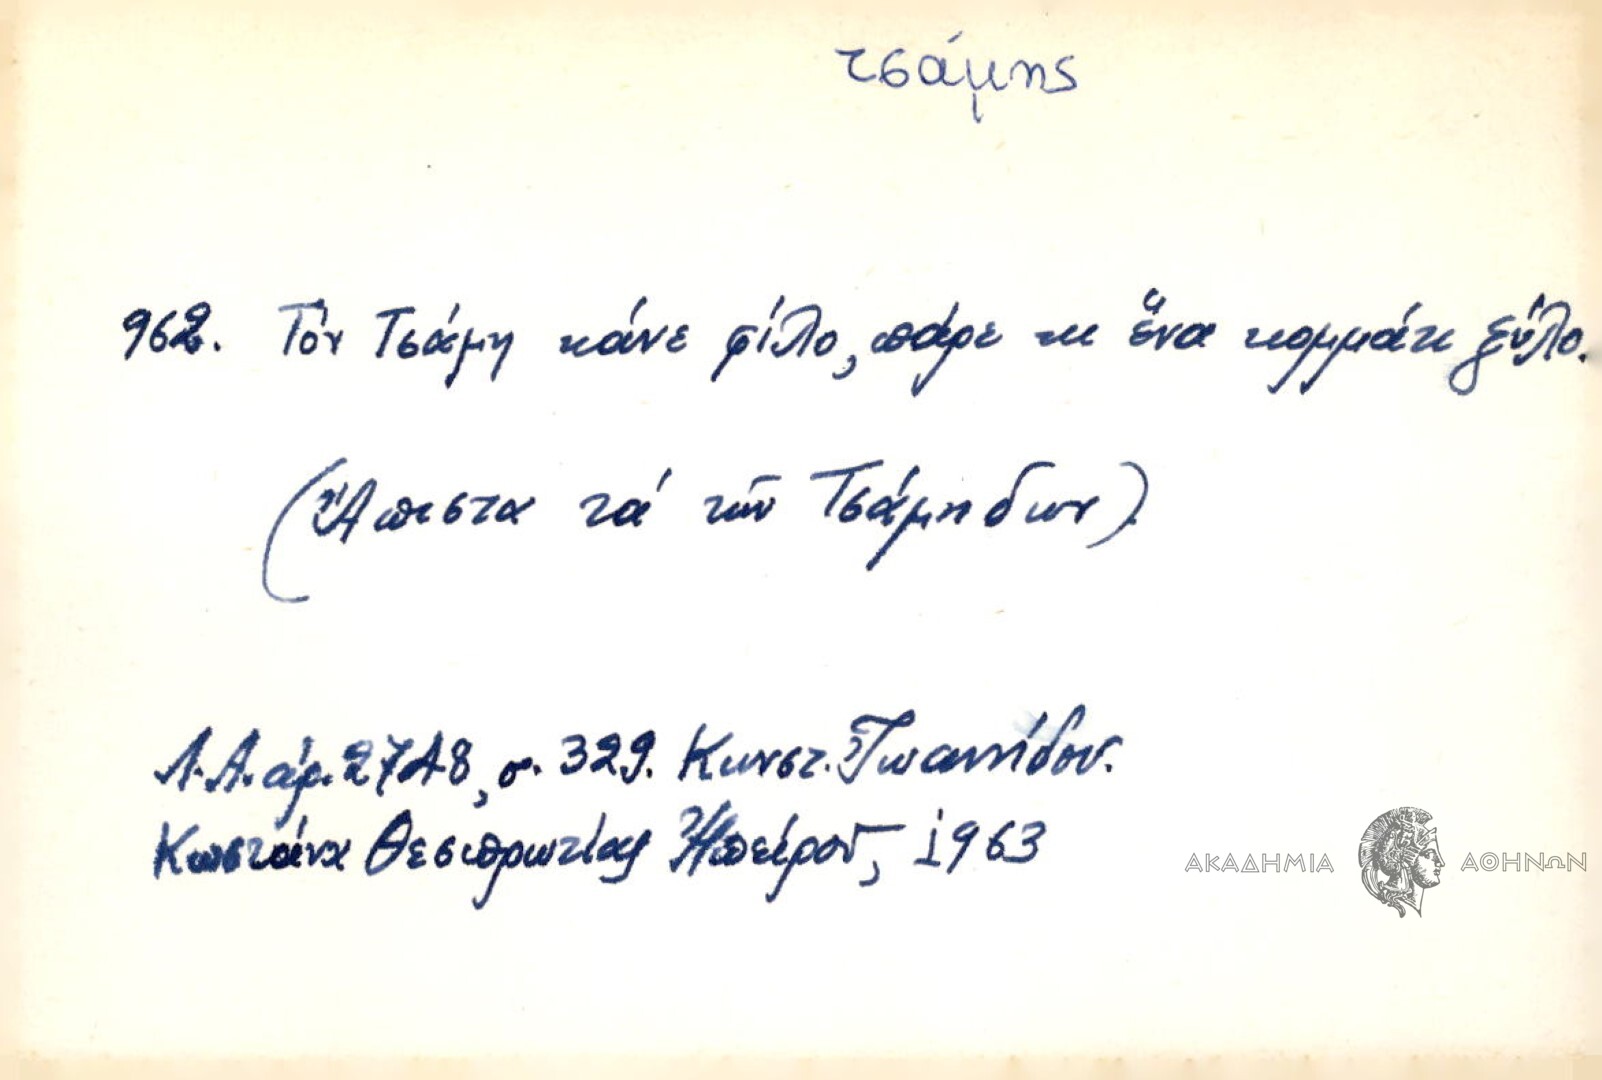 τσάμης
962. Τόν Τσάμη κάνε φίλο, πάρε κι ἕνα κομμάτι ξύλο.
(Ἄπιστα τά τῶν Τσάμηδων)
Λ.Α. άρ. 2748, σ. 329. Κωνστ. Ἰωαννίδου.
Κωστάνα Θεσπρωτίας Ἠπείρου, 1963
ΑΚΑΔΗΜΙΑ ΑΘΗΝΩΝ